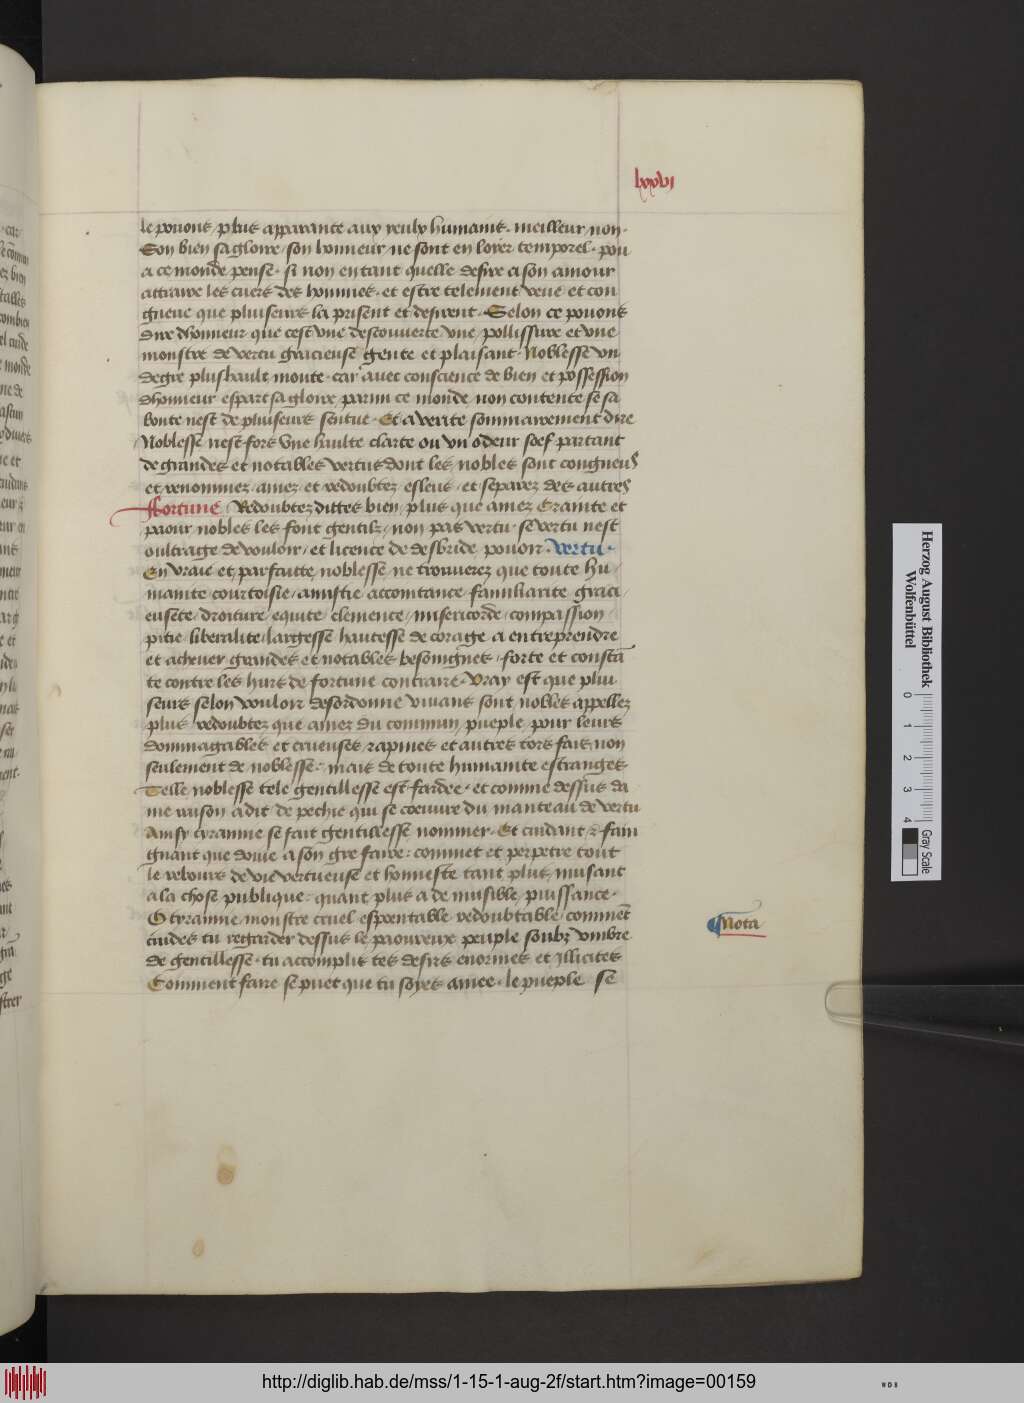 lxxvi
le pouons plus apparante aux yeulx humains. meilleur non.
Son bien sa gloire son honneur ne sont en loyer temporel. pou
a ce monde pense. si non en tant quelle desire a son amour
attraire les cuers des hommes. et estre telement veue et con
gneue que pluiseurs la prisent et desirent. Selon ce pouons
dire dhonneur que cest vne descouuerte vne pollissure et vne
monstre de vertu gracieuse gente et plaisant. Noblesse vn
degre plus hault monte. car auec conscience de bien et possession
dhonneur espart sa gloire parmi ce monde non contente se sa
bonte nest de pluiseurs sentue. Et a verite sommairement dire
Noblesse nest fors vne haulte clarte ou vn odeur soef partant
de grandes et notables vertus dont les nobles sont congneus
et renommez amez et redoubtez esleus et separez des autres
Fortune Redoubtez dittes bien plus que amez Crainte et
paour nobles les font gentilz non pas vertu. se vertu nest
oultrage de vouloir et licence de desbride pouoir. Vertu.
En vraie et parfaitte noblesse ne trouuerez que toute hu
manite courtoisie amistie accointance familiarite graci
eusete droiture equite clemence misericorde compassion
pitie liberalite largesse hautesse de corage a entreprendre
et acheuer grandes et notables besoingnes forte et constā
te contre les hurs de fortune contraire. Vray est que plui
seurs selon vouloir desordonne viuans sont nobles appellez
plus redoubtez que amez du commun pueple pour leurs
dommagables et crueuses rapines et autres tors fais non
seulement de noblesse. mais de toute humanite estranges.
Telle noblesse tele gentillesse est fardee. et comme dessus da
me raison a dit de pechie qui se coeuure du manteau de vertu
Ainsy tyrannie se fait gentillesse nommer. Et cuidant & fain
gnant que doiue a son gre faire: commet et perpetre tout
le rebours de vie vertueuse et honneste tant plus nuisant
a la chose publique: quant plus a de nuisible puissance.
O tyrannie monstre cruel espoentable redoubtable commēt
cuides tu regarder dessus le paoureux peuple soubz vmbre
de gentillesse. tu accomplis tes desirs enormes et illicites
Comment faire se puet que tu soyes amee. le pueple se
Nota
Herzog August Bibliothek
Wolfenbüttel
0 1 2 3 4
Gray Scale
http://diglib.hab.de/mss/1-15-1-aug-2f/start.htm?image=00159